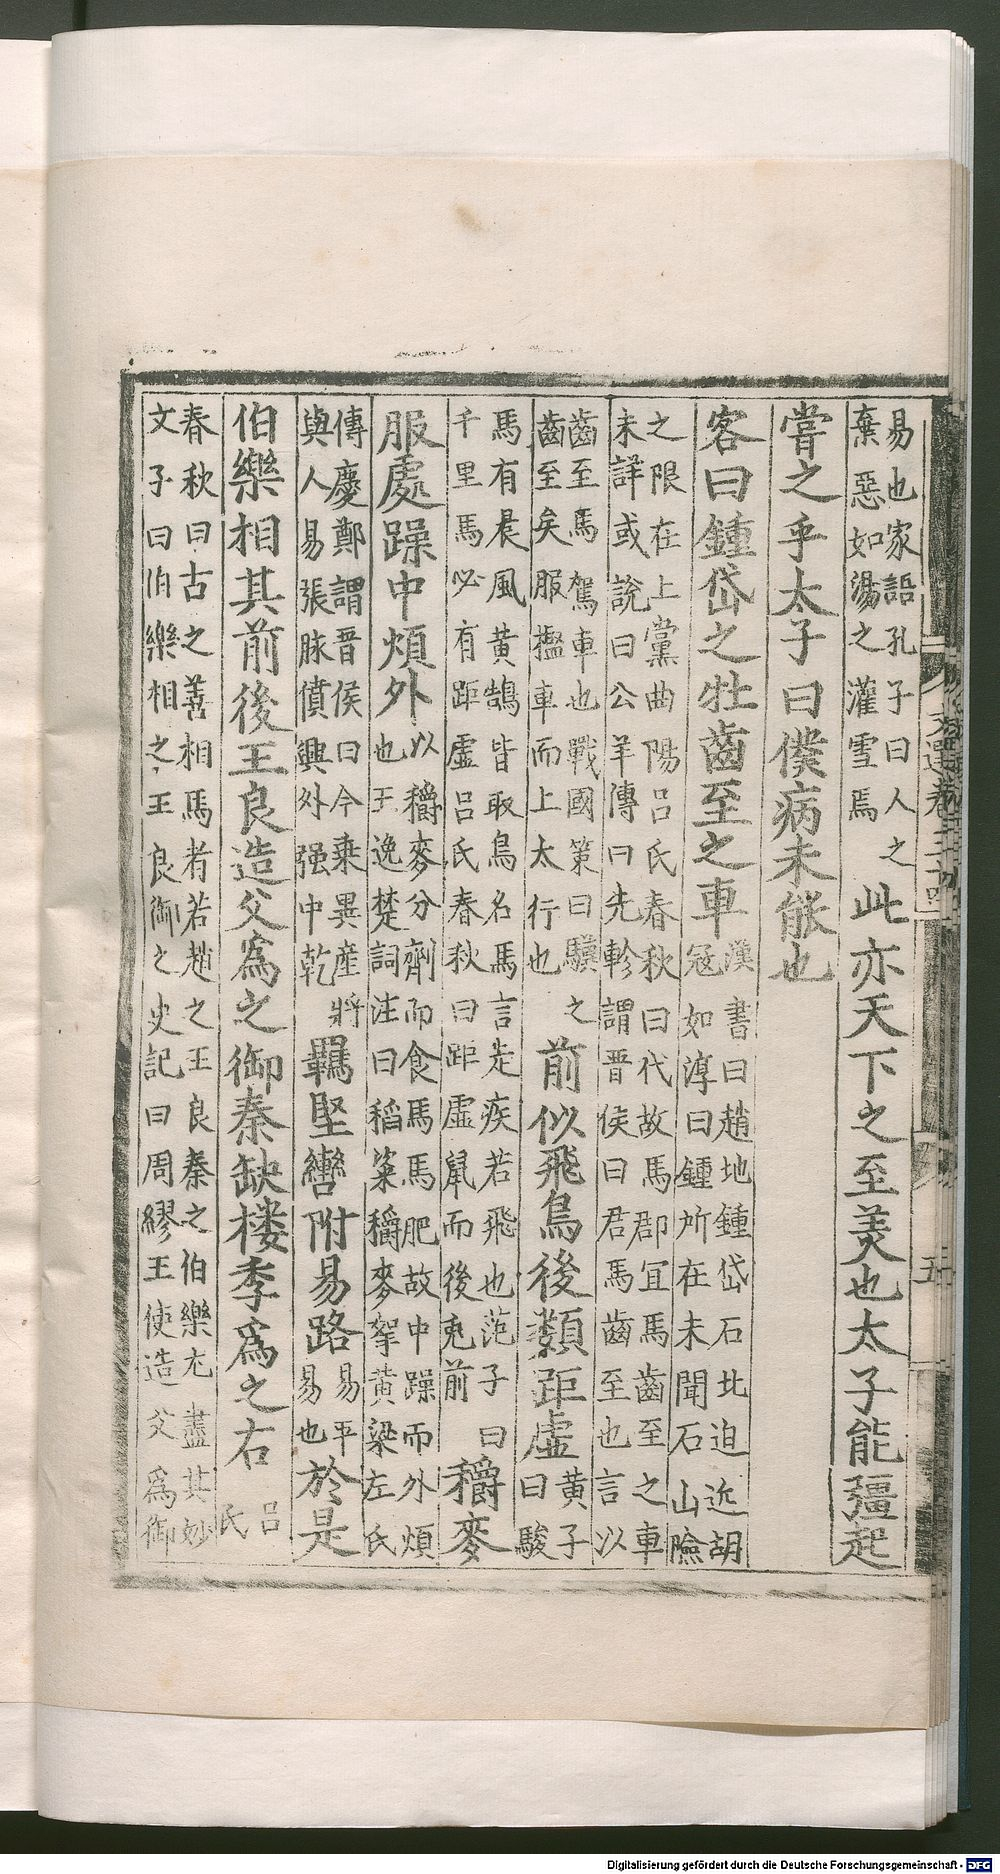 易也家語孔子曰人之
棄惡如湯之灌雪焉
此亦天下之至美也太子能彊起
嘗之乎太子曰僕病未能也
客曰鍾岱之牡齒至之車
漢書曰趙地鍾岱石北迫近胡
冦如淳曰鍾所在未聞石山險
之限在上黨曲陽呂氏春秋曰代故馬郡冝馬齒至之車
未詳或說曰公羊傳曰先軫謂晋侯曰君馬齒至也言以
齒至馬駕車也戰國策曰驥之
齒至矣服檻車而上太行也
前似飛鳥後類距虛
黃子
曰駿
馬有晨風黃鵠皆取鳥名馬言走疾若飛也范子曰
千里馬必有距虛呂氏春秋曰距虛鼠而後兎前
穱麥
服處躁中煩外
以穱麥分劑而食馬馬肥故中躁而外煩
也王逸楚詞注曰稻粢穱麥挐黃梁左氏
傳慶鄭謂晋侯曰今乗異產將
與人易張脉僨興外强中乾
羈堅轡附易路
易平
易也
於是
伯樂相其前後王良造父爲之御秦缺楼季爲之右
呂
氏
春秋曰古之善相馬者若趙之王良秦之伯樂尢盡其妙
文子曰伯樂相之王良御之史記曰周繆王使造父爲御
文選卷三十四
五
Digitalisierung gefördert durch die Deutsche Forschungsgemeinschaft - DFG